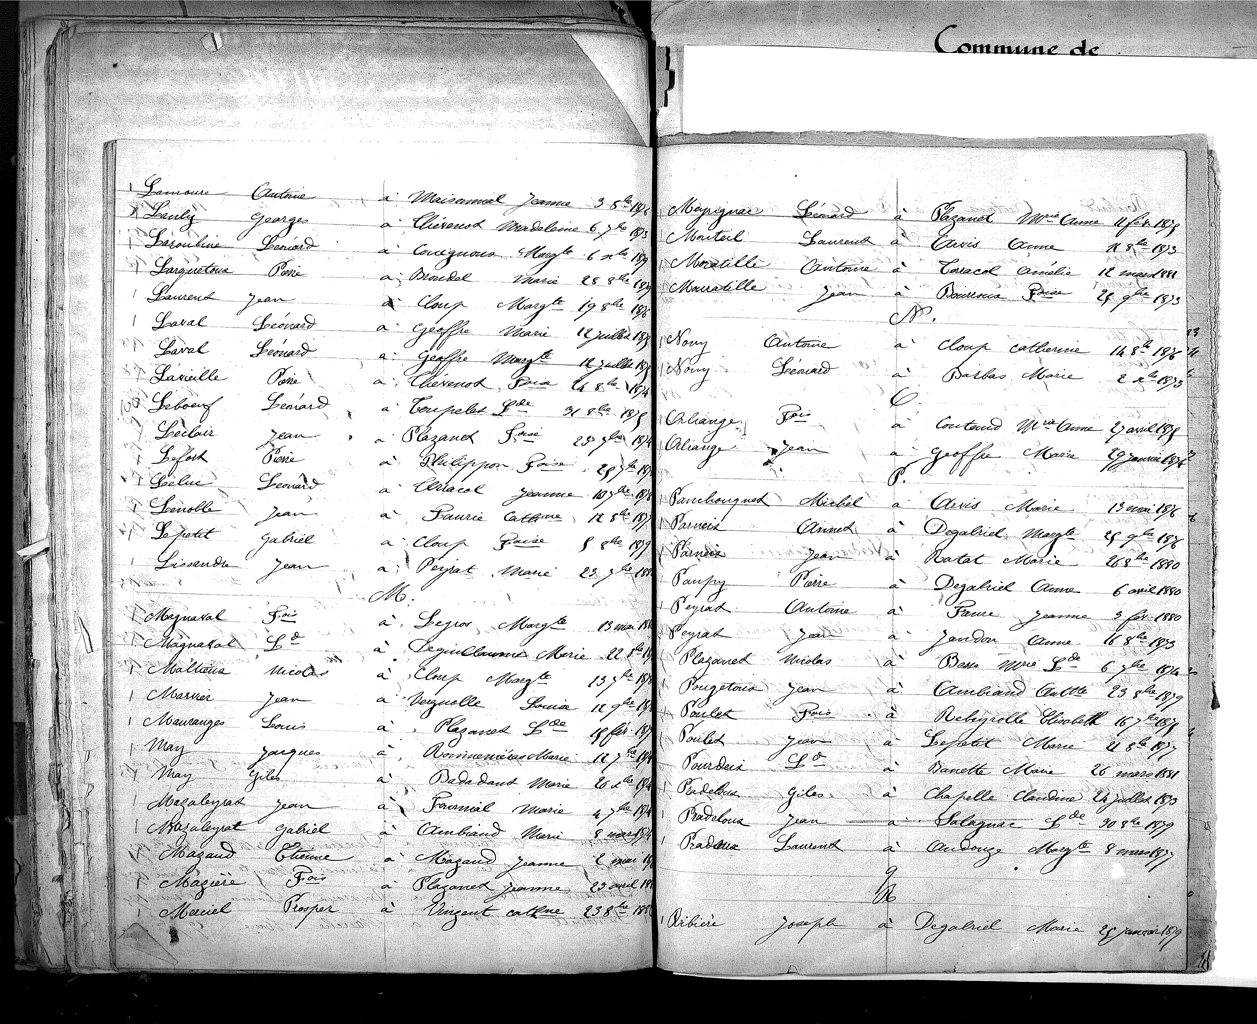 Commune de
Lamoure Antoine à Maisonnial Jeanne 3 8bre 1876
Lenly Georges à Thévenot Madeleine 6 7bre 1873
Laroubine Léonard à Couegnoux Margte 6 xbre 1879
Larguetoux Pierre à Brondel Marie 28 8bre
Laurent Jean à Cloup Margte 19 8bre 1876
Laval Léonard à Geoffre Marie 12 juillet
Laval Léonard à Geoffre Margte 12 juillet
Lavieille Pierre à Thévenot Foise 24 8bre 1874
Leboeuf Léonard à Toupelet Lde 31 8bre 1875
Leclair Jean à Plazanet Foise 25 9bre 1874
Lefort Pierre à Philippon Foise 29 7bre
Leluc Léonard à Taracol Jeanne 10 7bre 1878
Lenolle Jean à Faurie Cathne 12 8bre
Lepetit Gabriel à Cloup Foise 5 8bre 1879
Lissandre Jean à Peyrat Marie 23 7bre
M.
Magnaval Fois à Legros Margte 13 mai
Magnaval Ld à Leguillaume Marie 22 8bre
Mathieu Nicolas à Cloup Margte 13 7bre
Marner Jean à Vergnolle Louise 12 9bre
Mauranges Louis à Plazanet Lde 19 fév.
May Jacques à Marie 12 7bre
May Giles à Badadant Marie 26 xbre
Mazaleyrat Jean à Fournial Marie 4 7bre
Mazaleyrat Gabriel à Ambiand Marie 8 mars
Mazaud Etienne à Mazaud Jeanne 2 mai
Mazière Fois à Plazanet Jeanne 23 avril
Merciel Prosper à Vinzent Cathne 23 8bre
Meyrignac Léonard à Plazanet Mrie Anne 11 fév. 1875
Monteil Laurent à Arvis Anne 18 8bre 1873
Moratille Antoine à Taracol Amélie 12 mars 1881
Mouratille Jean à Bourroux Foise 25 9bre 1873
N.
Nony Antoine à Cloup Catherine 14 8bre 1876
Nony Léonard à Barbas Marie 2 xbre 1873
O.
Orliange Fois à Coutaud Mrie Anne 27 avril 1875
Orliange Jean à Geoffre Marie 29 janvier 1876
P.
Pambouquet Michel à Arvis Marie 13 mai 1876
Parneix Annet à Degabriel Margte 25 9bre 1876
Parneix Jean à Ratat Marie 26 8bre 1880
Paupy Pierre à Degabriel Anne 6 avril 1880
Peyrat Antoine à Faure Jeanne 3 fév. 1880
Peyrat Jean à Jandon Anne 16 8bre 1873
Plazanet Nicolas à Barre Mrie Lde 6 7bre 1874
Pougetoux Jean à Ambiaud Antte 23 8bre 1879
Poulet Fois à Rebeyrolle Elisabeth 16 7bre 1875
Poulet Jean à Lepetit Marie 21 8bre 1877
Pourdeix Ld à Banette Marie 26 mars 1881
Pradeloux Giles à Chapelle Claudine 24 juillet 1873
Pradeloux Jean à Salagnac Lde 30 8bre 1879
Pradoux Laurent à Audouze Margte 8 mars 1877
Q
R
Ribière Joseph à Degabriel Marie 25 janvier 1879